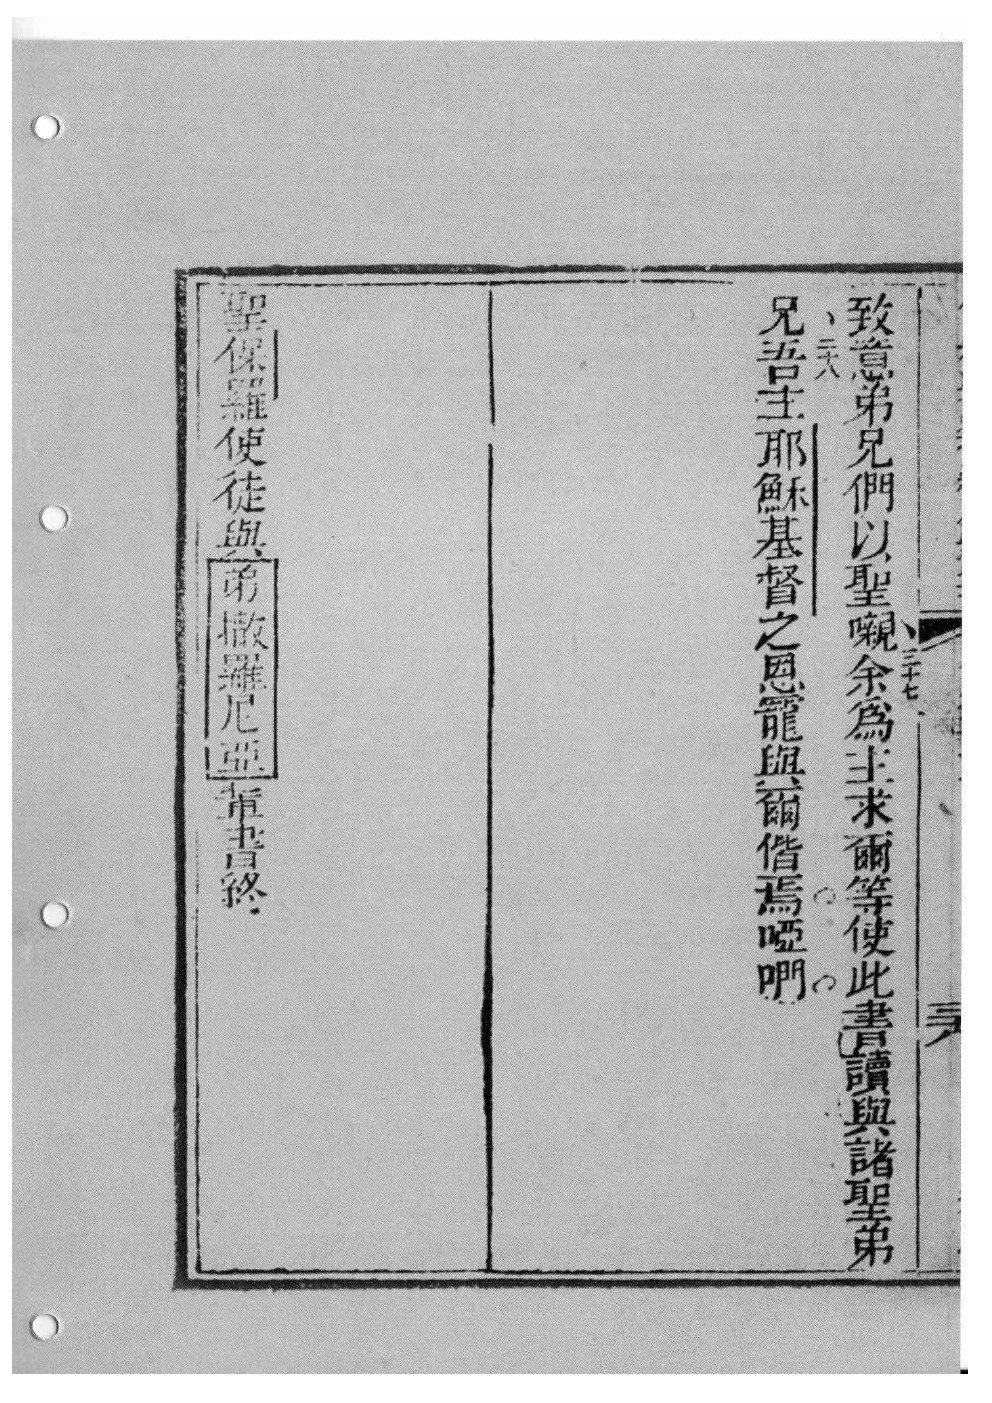 致意弟兄們以聖嚫、二十七余為主求爾等使此書讀與諸聖弟
兄、二十八吾主耶穌基督之恩寵與爾偕焉。啞們。
聖保羅使徒與弟撒羅尼亞輩書終